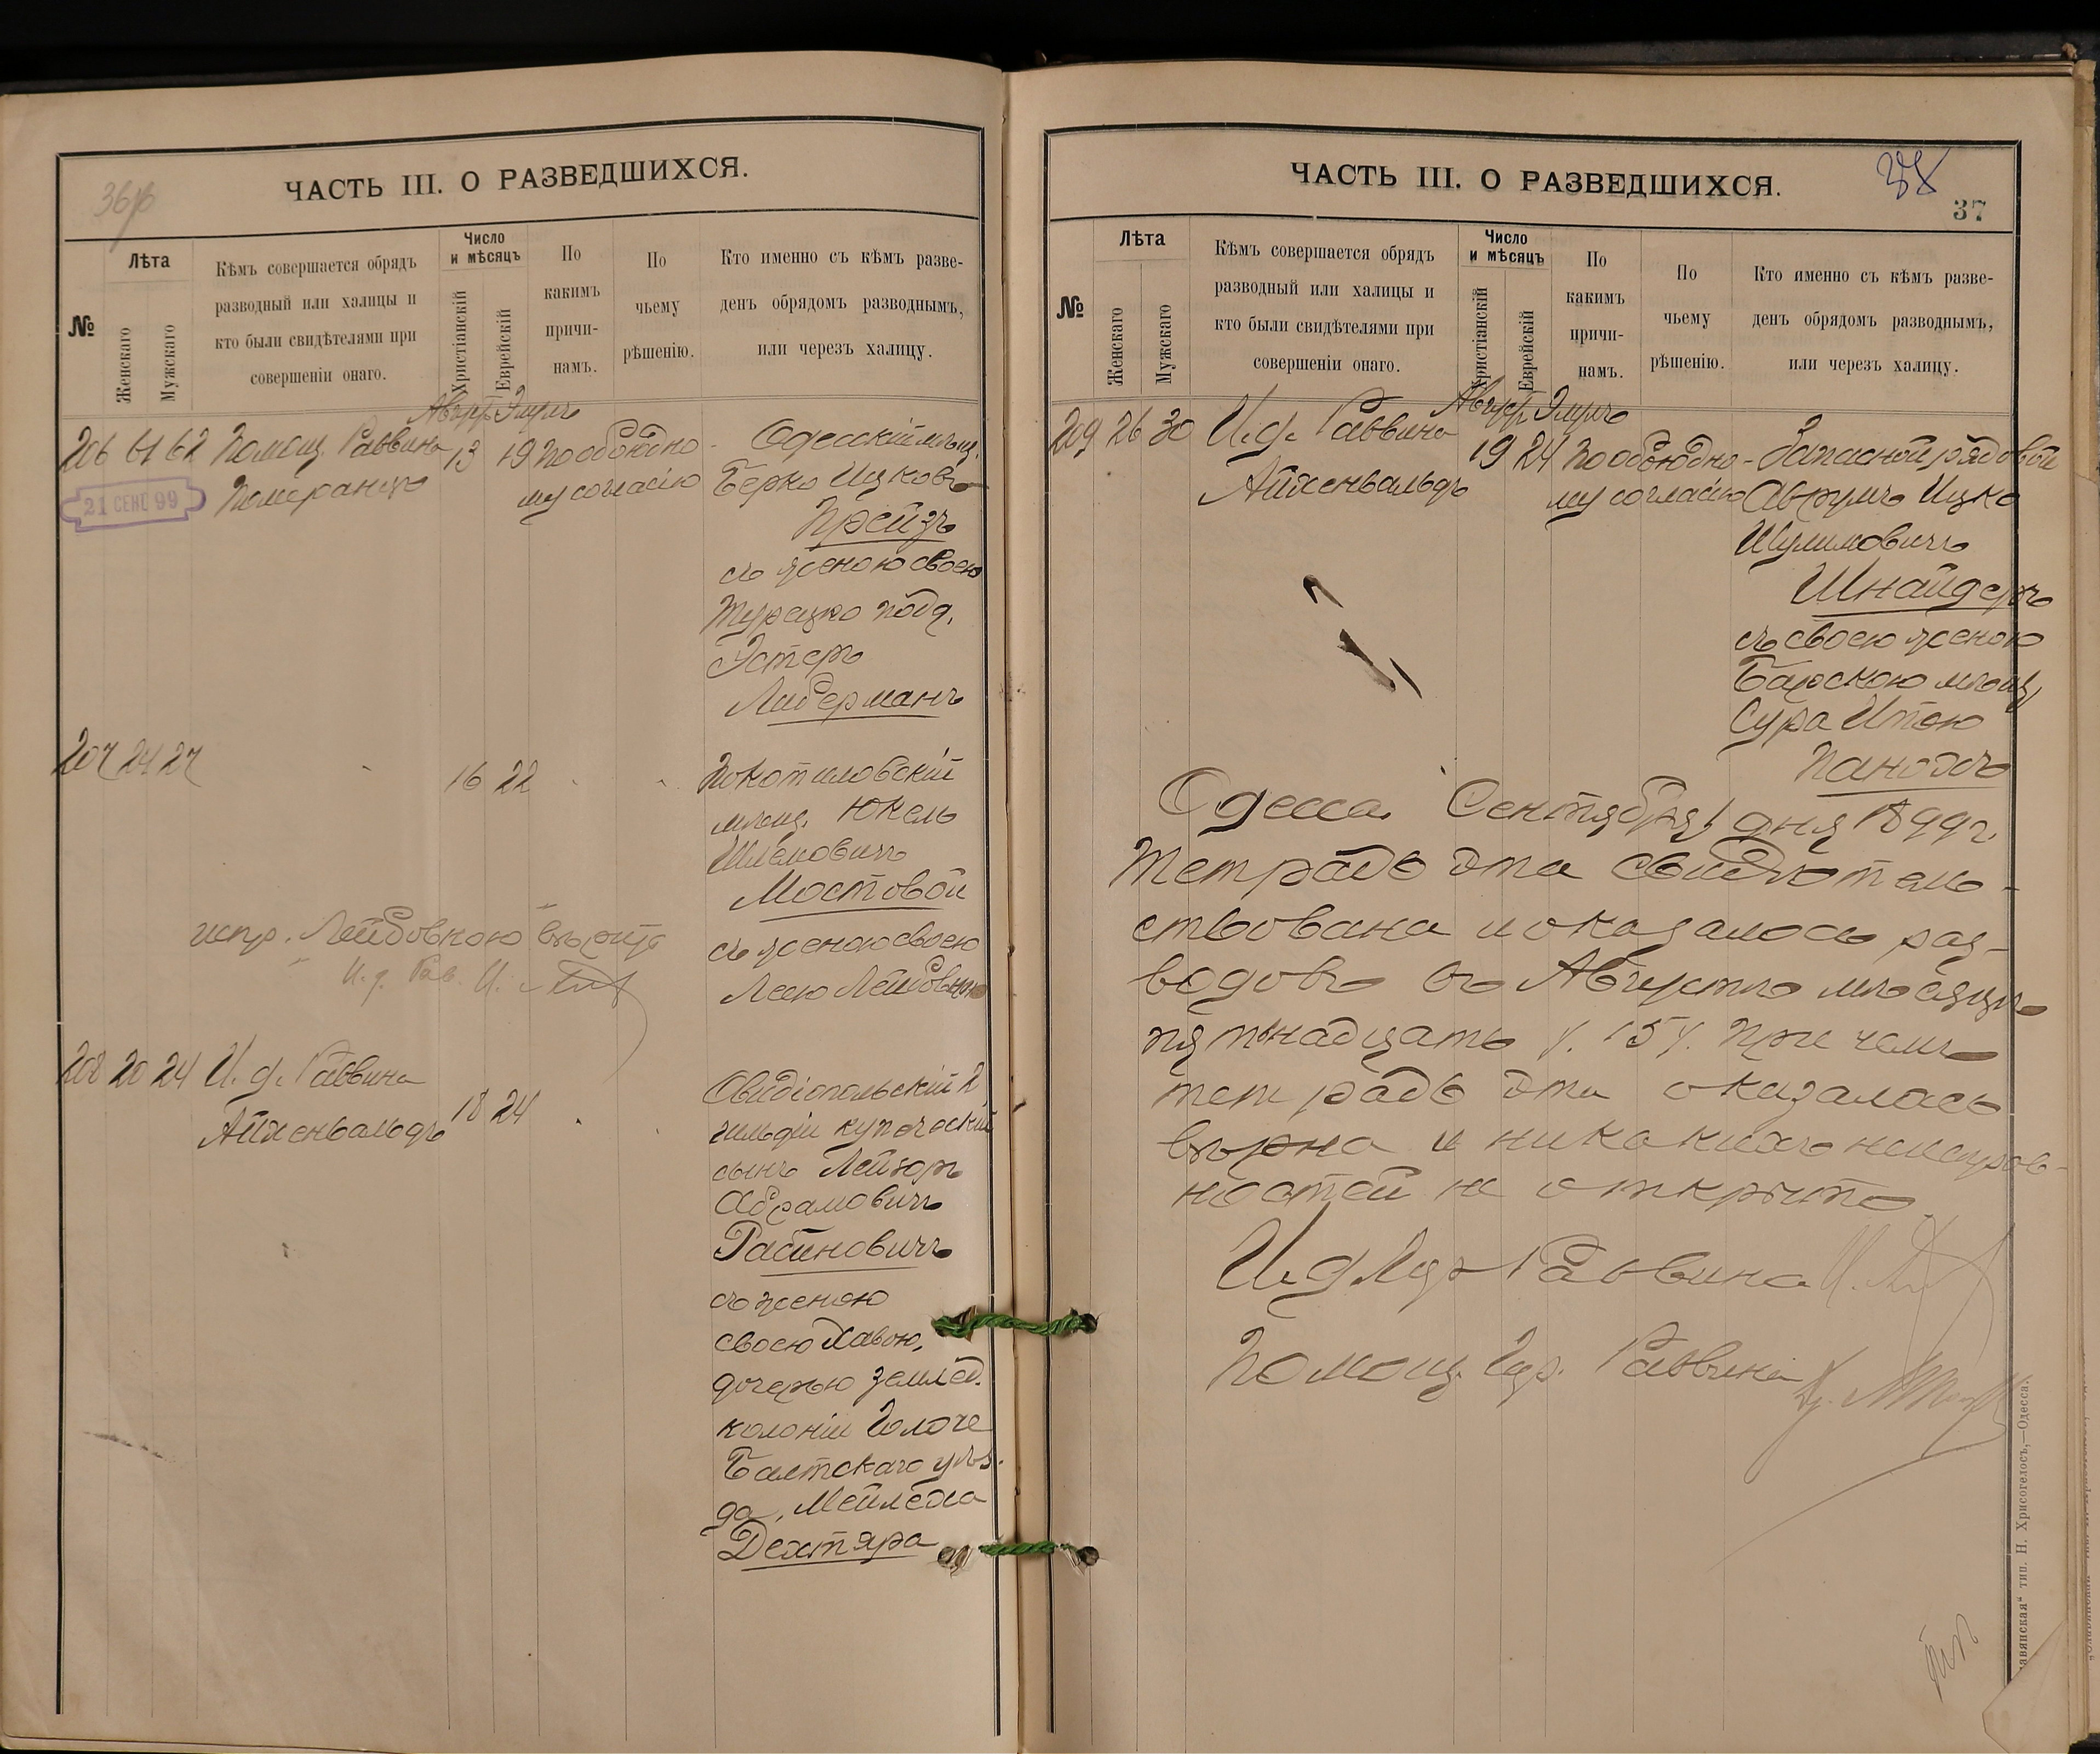 ЧАСТЬ III. О РАЗВЕДШИХСЯ.
№
Лѣта
Женскаго
Мужскаго
Кѣмъ совершается обрядъ
разводный или халицы и
кто были свидѣтелями при
совершеніи онаго.
Число
и мѣсяцъ
Христіанскій
Еврейскій
По
какимъ
причи-
намъ.
По
чьему
рѣшенію.
Кто именно съ кѣмъ разве-
денъ обрядомъ разводнымъ,
или черезъ халицу.
206 61 62 Помощ. Раввина
Померанцъ
21 СЕНТ 99
13 19 По обоюдно-
му согласію
Одесскій мѣщ.
Берко Ицковъ
Прейзъ
съ женою своею
Турецко подд.
Эстеръ
Либерманъ
207 24 27
16 22
Покотиловскій
мѣщ. Юкель
Шлемовичъ
Мостовой
съ женою своею
Леею Лейбовною
испр. Лейбовною вѣрить
И. д. Рав.
208 20 24 И. д. Раввина
Айхенвальдъ
18 24
Овидіопольскій 2
гильдіи купеческій
сынъ Лейзоръ
Абрамовичъ
Рабиновичъ
съ женою
своею Хавою,
дочерью землед.
колоніи
Балтскаго уѣз-
да, Мейлеха
Дехтяра
ЧАСТЬ III. О РАЗВЕДШИХСЯ.
37
№
Лѣта
Женскаго
Мужскаго
Кѣмъ совершается обрядъ
разводный или халицы и
кто были свидѣтелями при
совершеніи онаго.
Число
и мѣсяцъ
Христіанскій
Еврейскій
По
какимъ
причи-
намъ.
По
чьему
рѣшенію.
Кто именно съ кѣмъ разве-
денъ обрядомъ разводнымъ,
или черезъ халицу.
209 26 30 И. д. Раввина
Айхенвальдъ
19 24 По обоюдно-
му согласію
Запасной рядовой
Аврумъ Ицко
Шулимовичъ
Шнайдеръ
съ своею женою
Барскою мѣщ.
Сура Итою
Одесса. Сентября 1 дня 1899 г.
Тетрадь эта свидѣтель-
ствована и оказалось раз-
водовъ въ Августѣ мѣсяцѣ
пятнадцать /. 15 /. При чемъ
тетрадь эта оказалась
вѣрна и никакихъ неисправ-
ностей не открыто
И. д. Гор. Раввина
Помощ. Гор. Раввина
тип. Н. Хрисогелосъ,—Одесса.